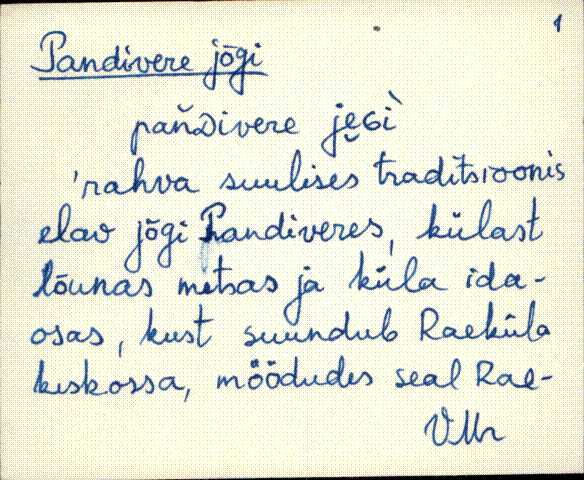 1
Pandivere jõgi
pańDivere je̮Gì
'rahva suulises traditsioonis
elav jõgi Pandiveres, külast
lõunas metsas ja küla ida-
osas, kust suundub Raeküla
keskossa, möödudes seal Rae-
VMr